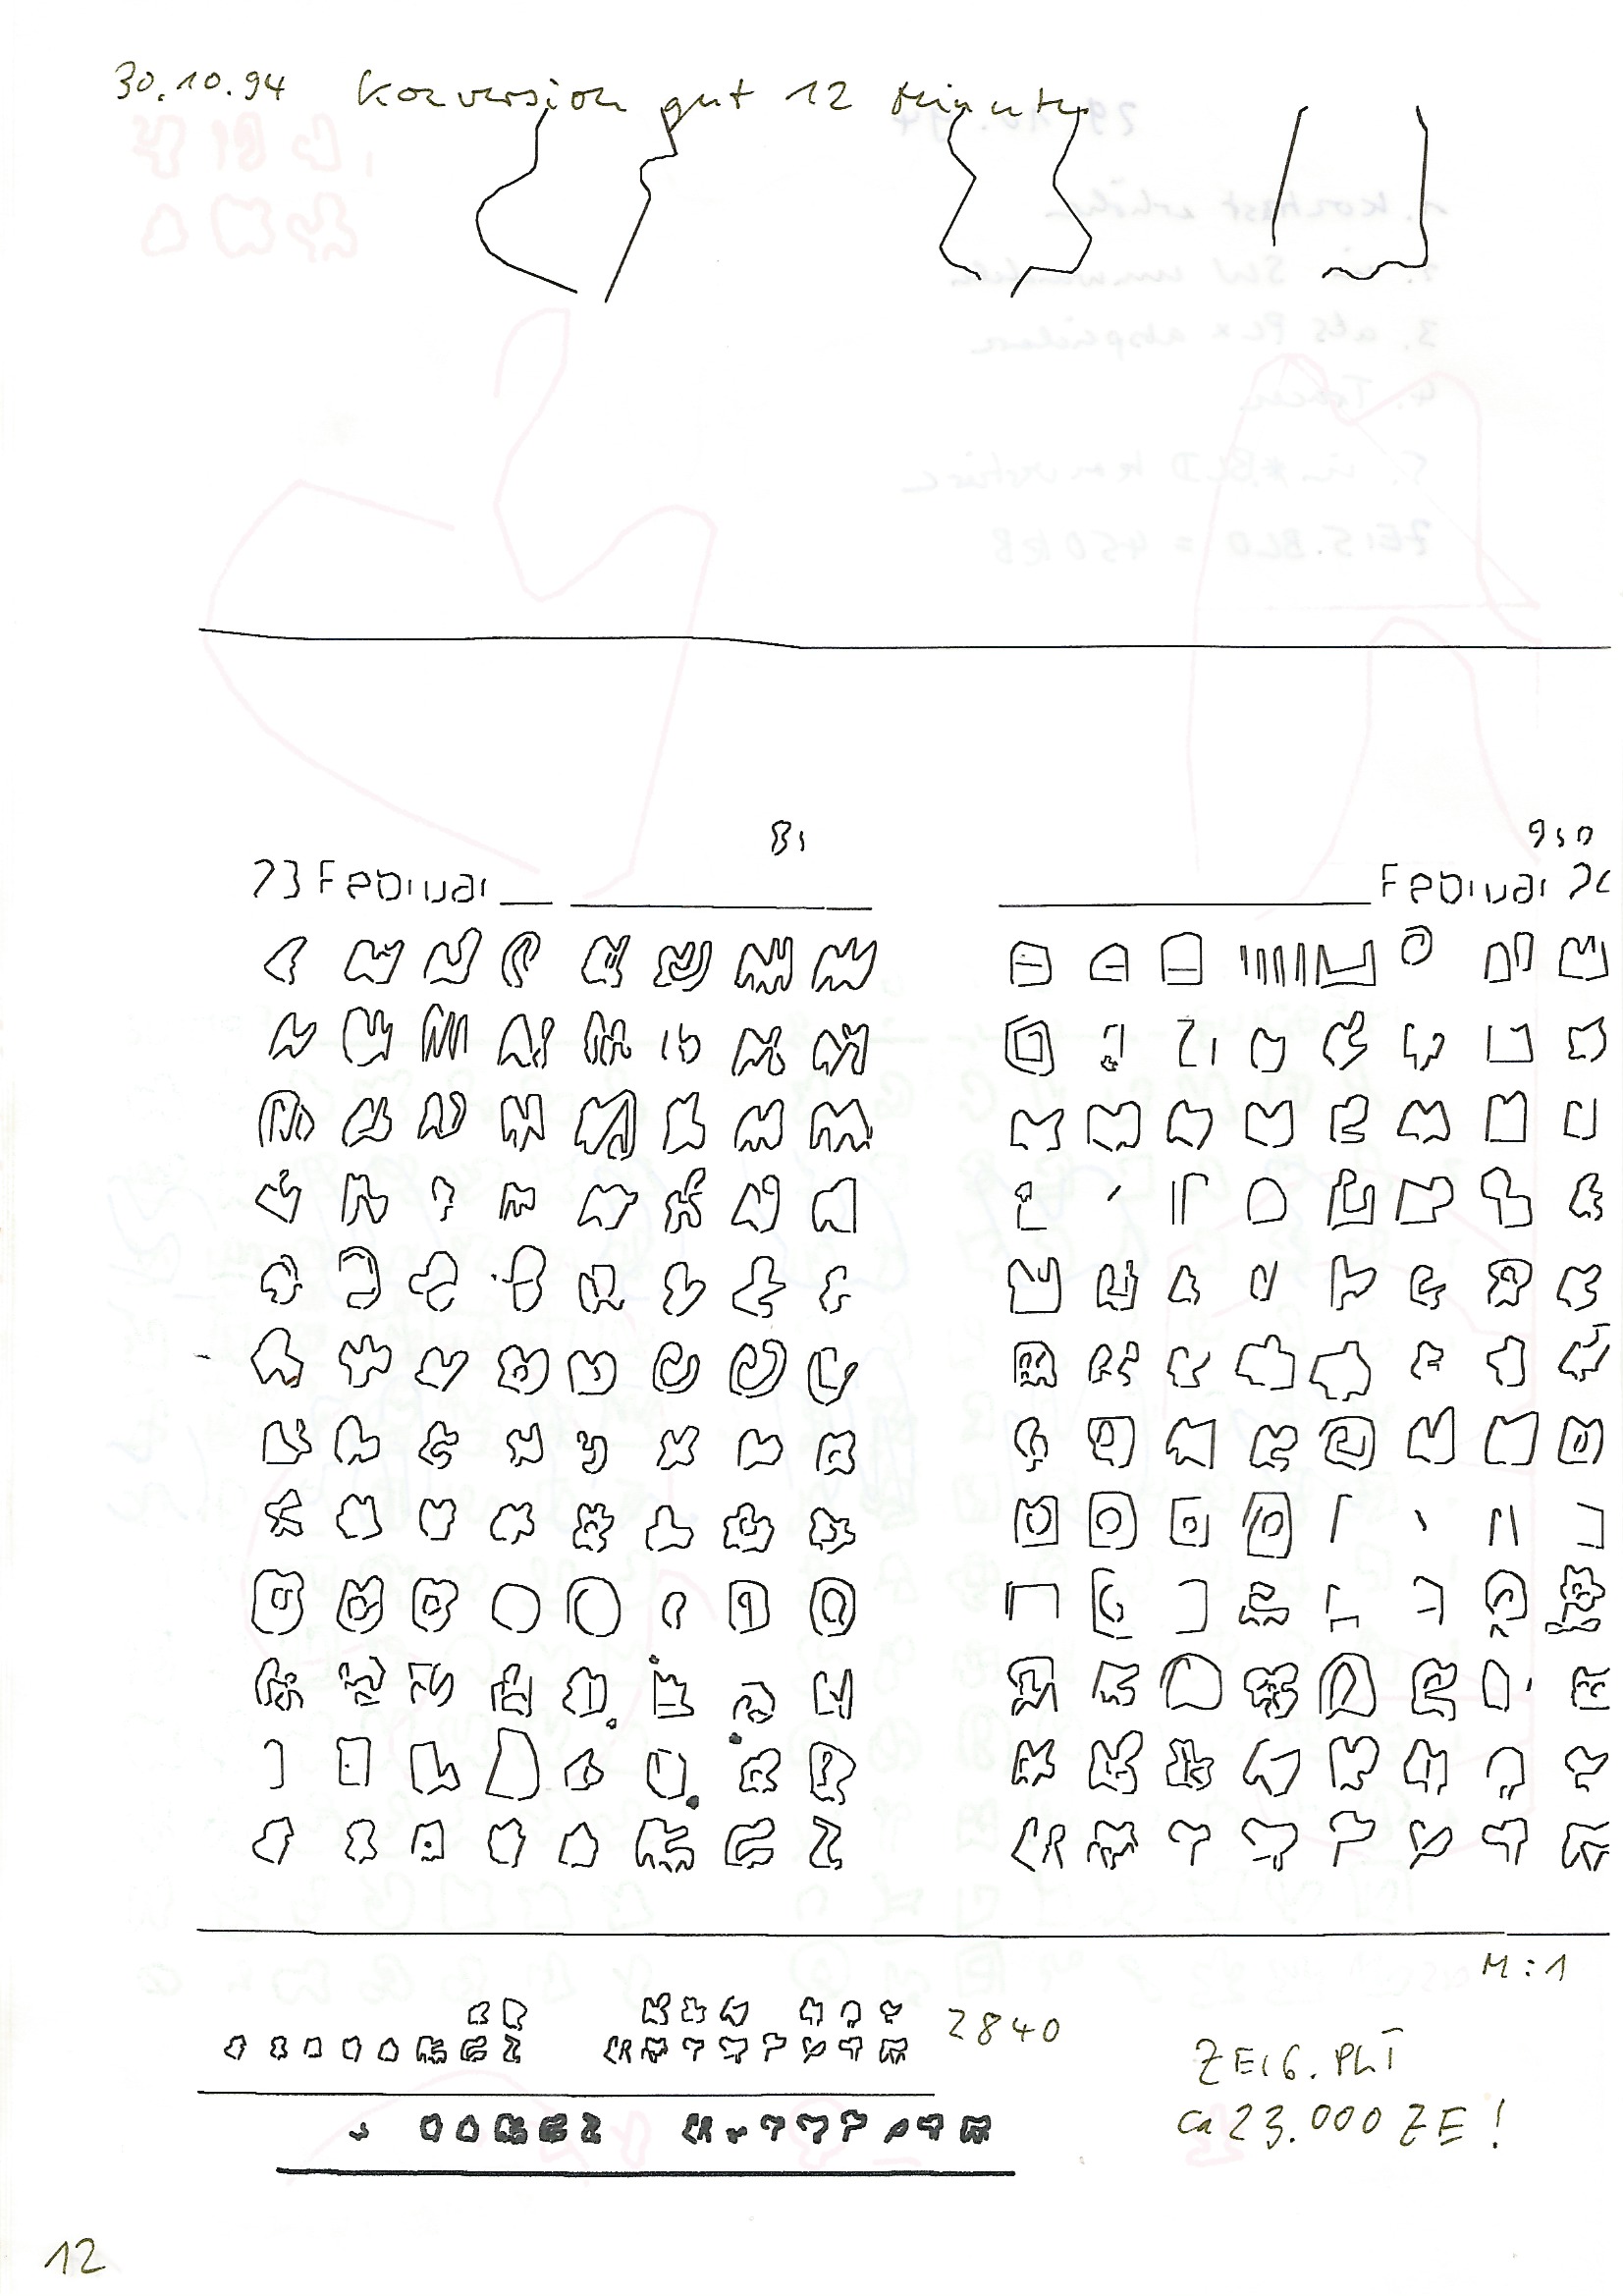 30.10.94 Konversion gut 12 Minuten
81
950
23 Februar
Februar
M:1
2840
ZEI6.PLT
ca 23.000 ZE!
12